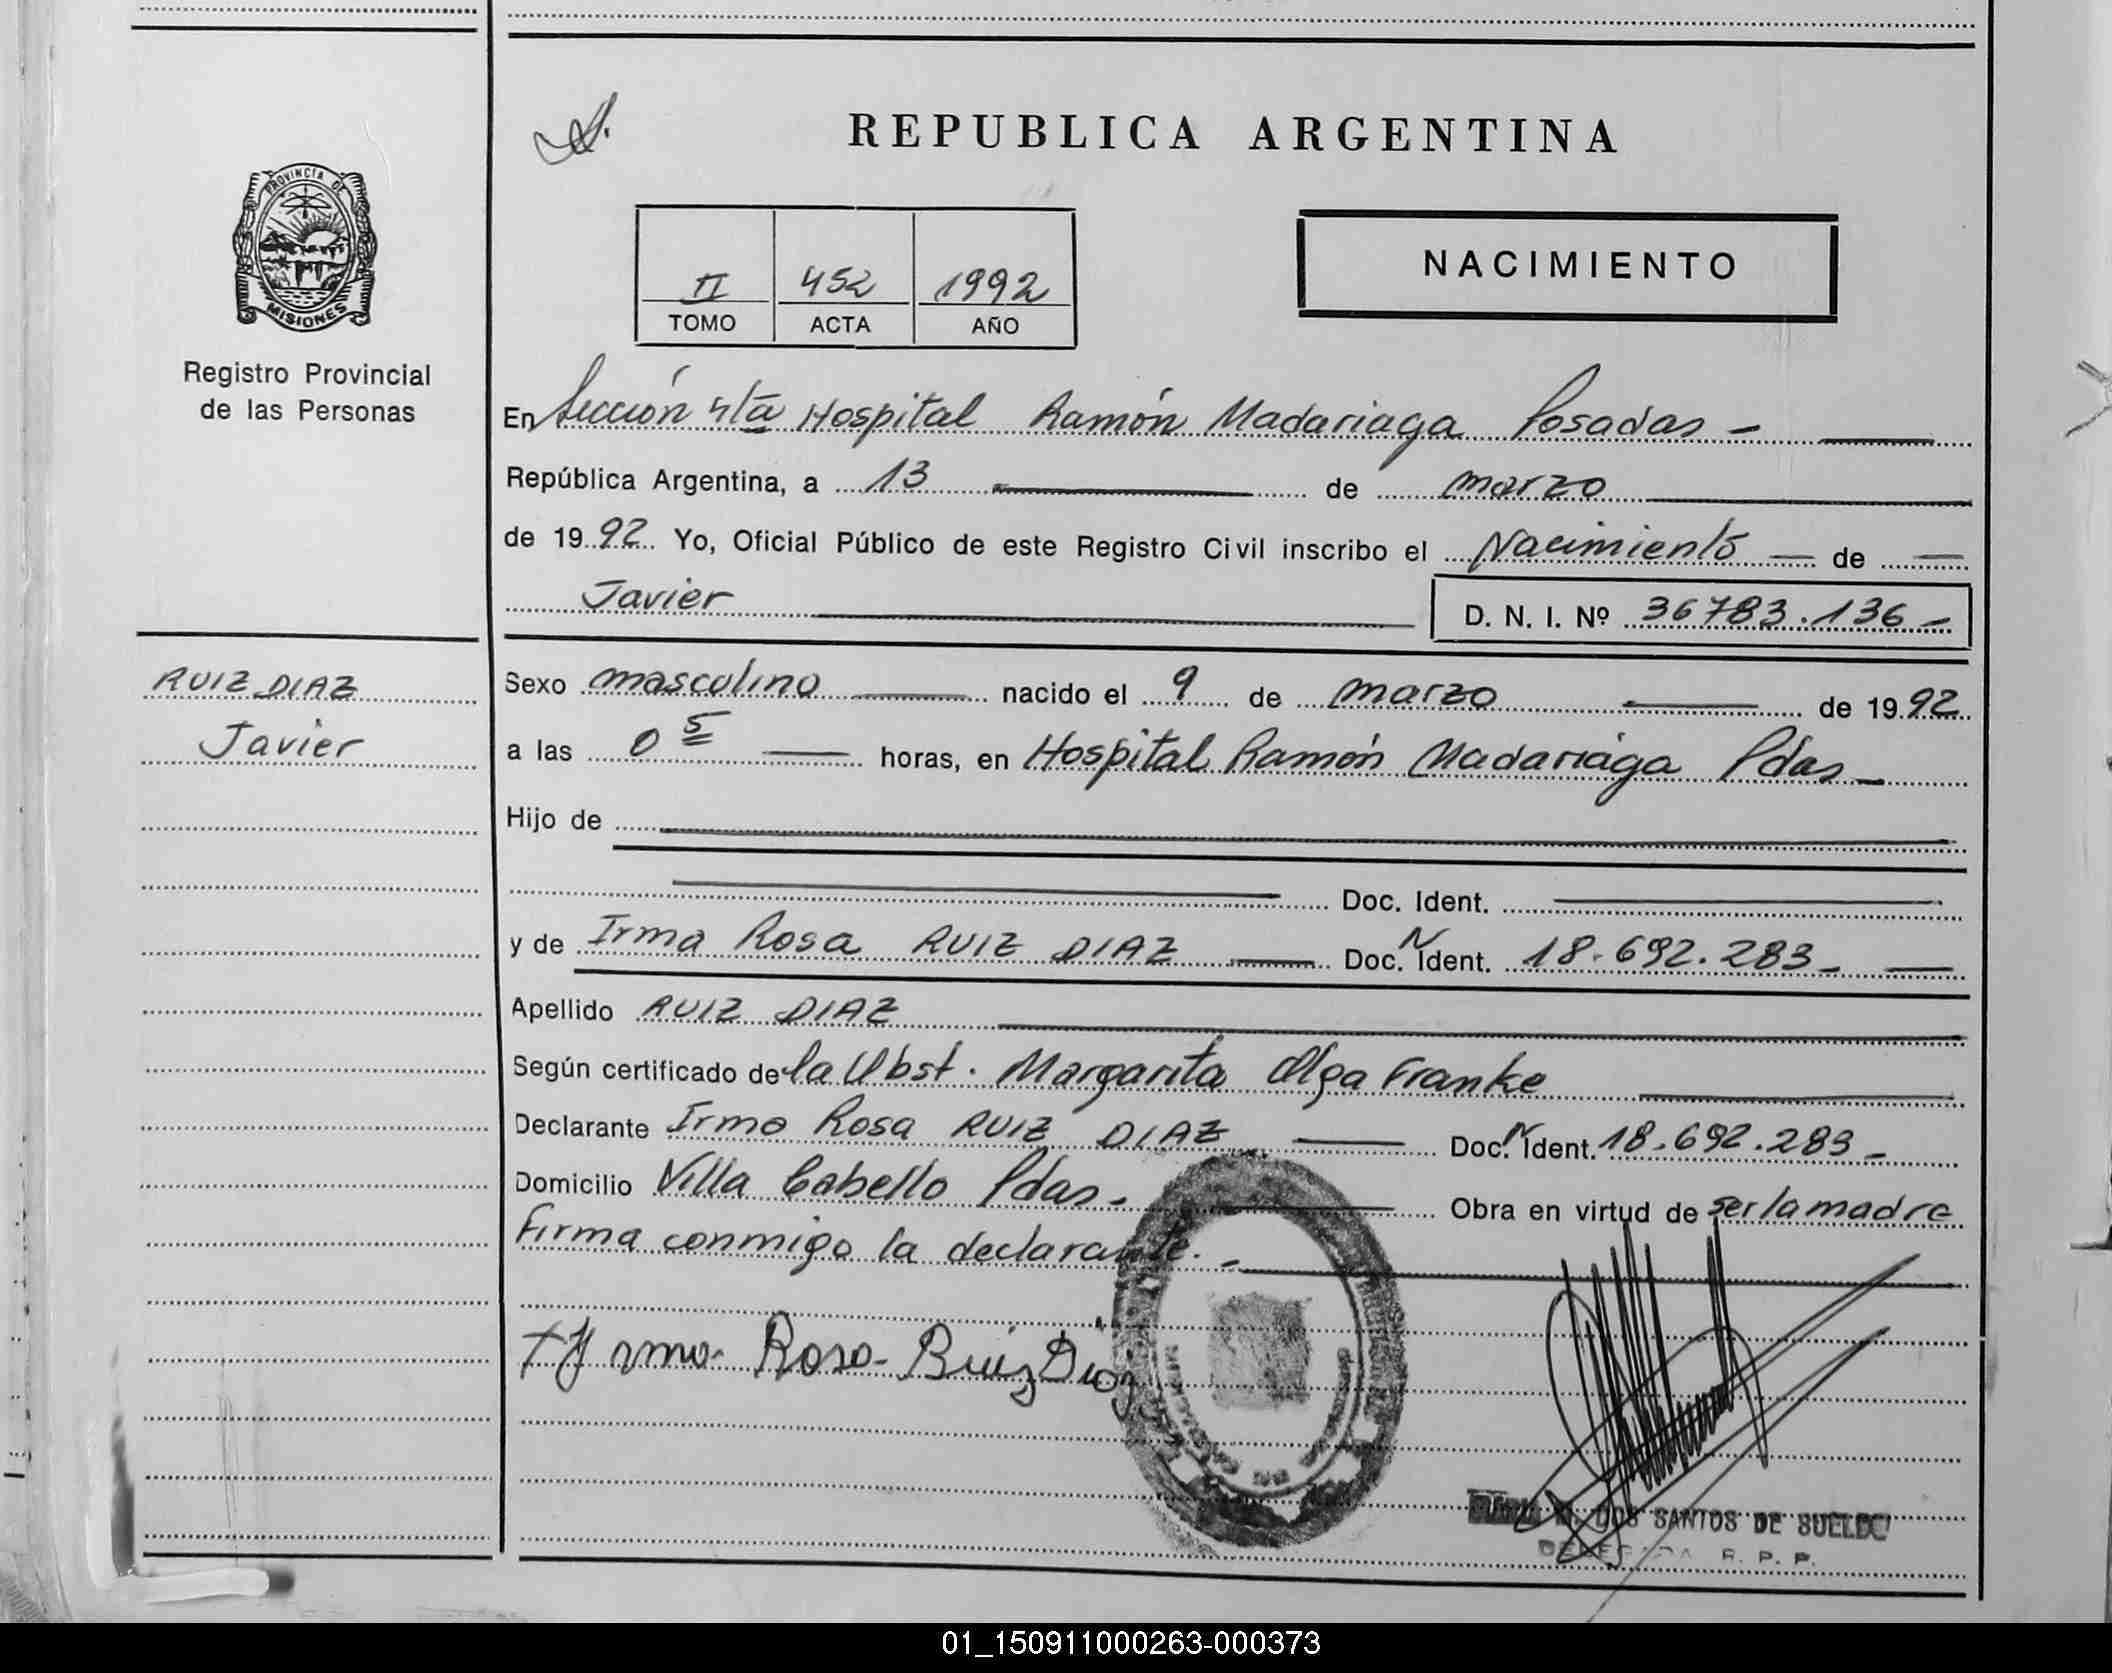 REPUBLICA ARGENTINA
PROVINCIA DE
MISIONES
Registro Provincial
de las Personas
II 452 1992
TOMO ACTA AÑO
NACIMIENTO
En Sección 4ta Hospital Ramón Madariaga Posadas -
República Argentina, a 13 de marzo
de 1992 Yo, Oficial Público de este Registro Civil inscribo el Nacimiento de
Javier D. N. I. Nº 36783.136 -
RUIZ DIAZ
Javier
Sexo masculino nacido el 9 de marzo de 1992
a las 0 5 horas, en Hospital Ramón Madariaga Pdas -
Hijo de
Doc. Ident.
y de Irma Rosa RUIZ DIAZ Doc. N Ident. 18.692.283 -
Apellido RUIZ DIAZ
Según certificado de la Obst. Margarita Olga Franke
Declarante Irma Rosa RUIZ DIAZ Doc. N Ident. 18.692.283 -
Domicilio Villa Cabello Pdas. Obra en virtud de ser la madre
Firma conmigo la declarante. -
Irma Rosa Ruiz Diaz
DOS SANTOS DE SUELDO
DELEGADA R. P. P.
01_150911000263-000373